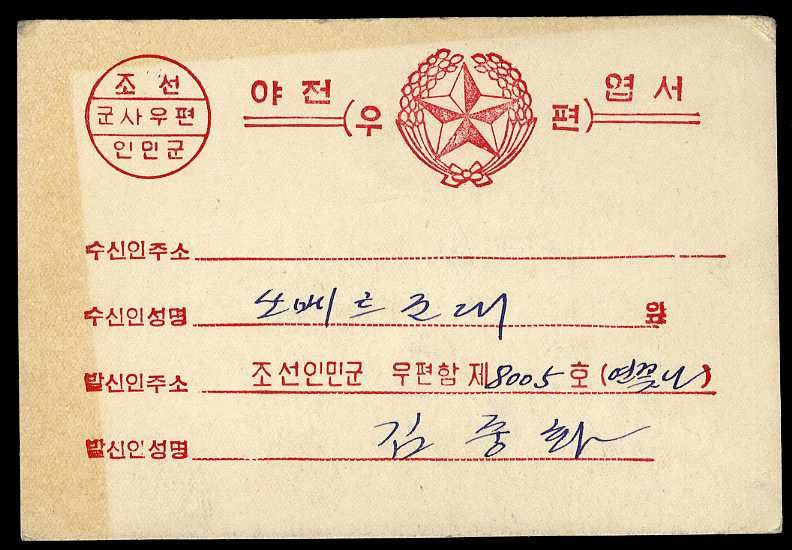 조 선
군사우편
인민군
야 전 엽 서
(우 편)
수신인주소
수신인성명 앞
발신인주소 조선인민군 우편함 제8005호 (연꽃나)
발신인성명 김 중 화